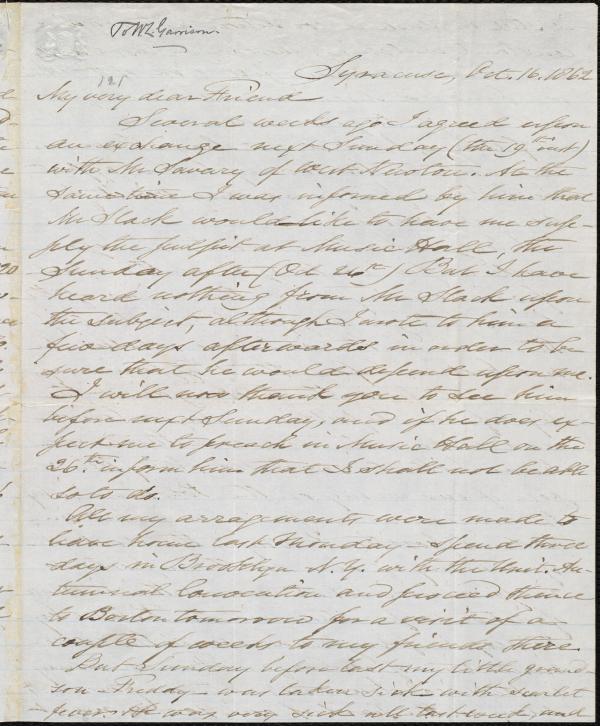 To W. L. Garrison.
Syracuse, Oct. 16. 1862
121
My very dear Friend
Several weeks ago I agreed upon
an exchange next Sunday (the 19th inst)
with Mr Savary of West Newton. At the
same time I was informed by him that
Mr Slack would like to have me sup-
ply the pulpit at Music Hall, the
Sunday after (Oct 26th) But I have
heard nothing from Mr Slack upon
the subject, although I wrote to him a
few days afterwards in order to be
sure that he would depend upon me.
I will now thank you to see him
before next Sunday, and if he does ex-
pect me to preach in Music Hall on the
26th inform him that I shall not be able
so to do.
All my arragements were made to
leave home last Monday - spend three
days in Brooklyn N.Y. with the Unit. Au-
tumnal Convocation and proceed thence
to Boston tomorrow for a visit of a
couple of weeks to my friends there.
But Sunday before last my little grand-
son Freddy was taken sick with scarlet
fever. He was very sick all last week and